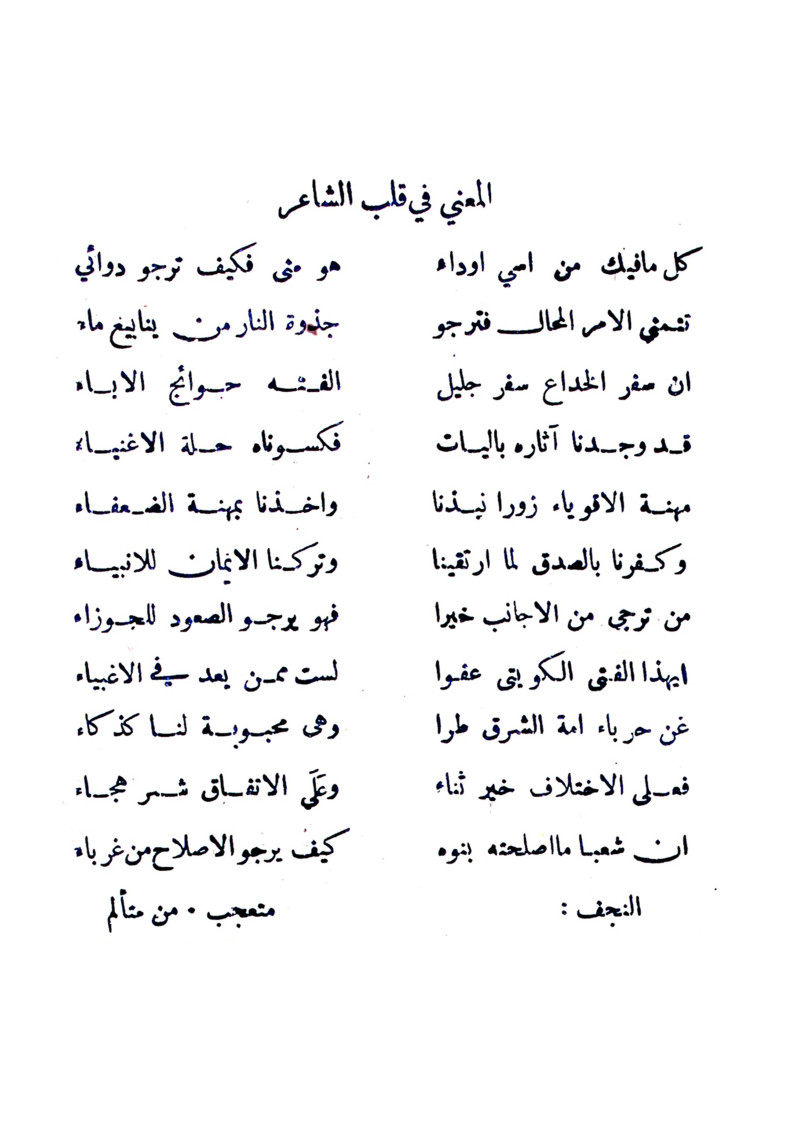 المعني في قلب الشاعر
كل مافيك من اسي اوداء هو منى فكيف ترجو دوائي
تتمني الامر المحال فترجو جذوة النار من ينابيغ ماء
ان صفر الخداع سفر جليل الفته حوائج الاباء
قد وجدنا آثاره باليات فكسوناه حلة الاغنياء
مهنة الاقوياء زورا نبذنا واخذنا بمهنة الضعفاء
وكفرنا بالصدق لما ارتقينا وتركنا الايمان للانبياء
من ترجي من الاجانب خيرا فهو يرجو الصعود للجوزاء
ايهذا الفتى الكويتى عفوا لست ممن يعد في الاغبياء
غن حرباء امة الشرق طرا وهى محبوبة لنا كذكاء
فعلى الاختلاف خير ثناء وعَلَي الاتفاق شر هجاء
ان شعبا مااصلحته بنوه كيف يرجو الاصلاح من غرباء
النجف : متعجب . من متألم